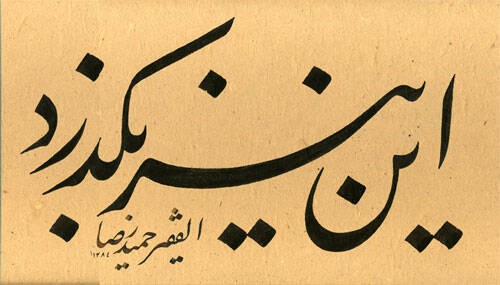 این نیز بگذرد
الفقیر حمیدرضا
۱۳۸۴